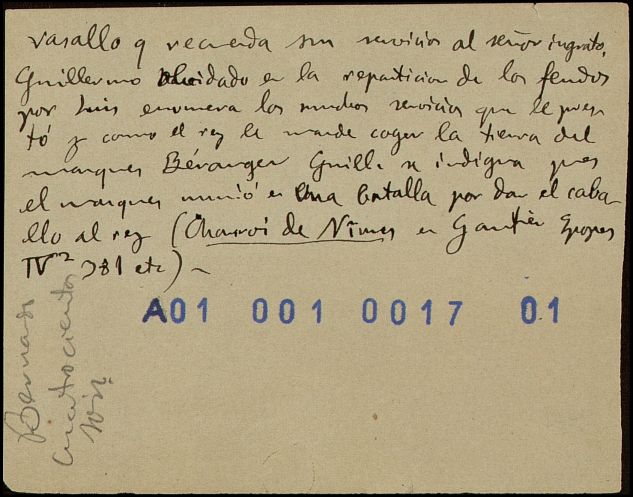 vasallo q recuerda sus servicios al señor ingrato.
Guillermo olvidado en la reparticion de los feudos
por Luis enumera los muchos servicios que le pres
tó y como el rey le mande coger la tierra del
marques Béranger Guill. se indigna pues
el marques murió en una batalla por dar el caba-
llo al rey (Charroi de Nîmes en Gautier Epopees
IV² 381 etc) –
A01 001 0017 01
Bernardo
cuatrocientos